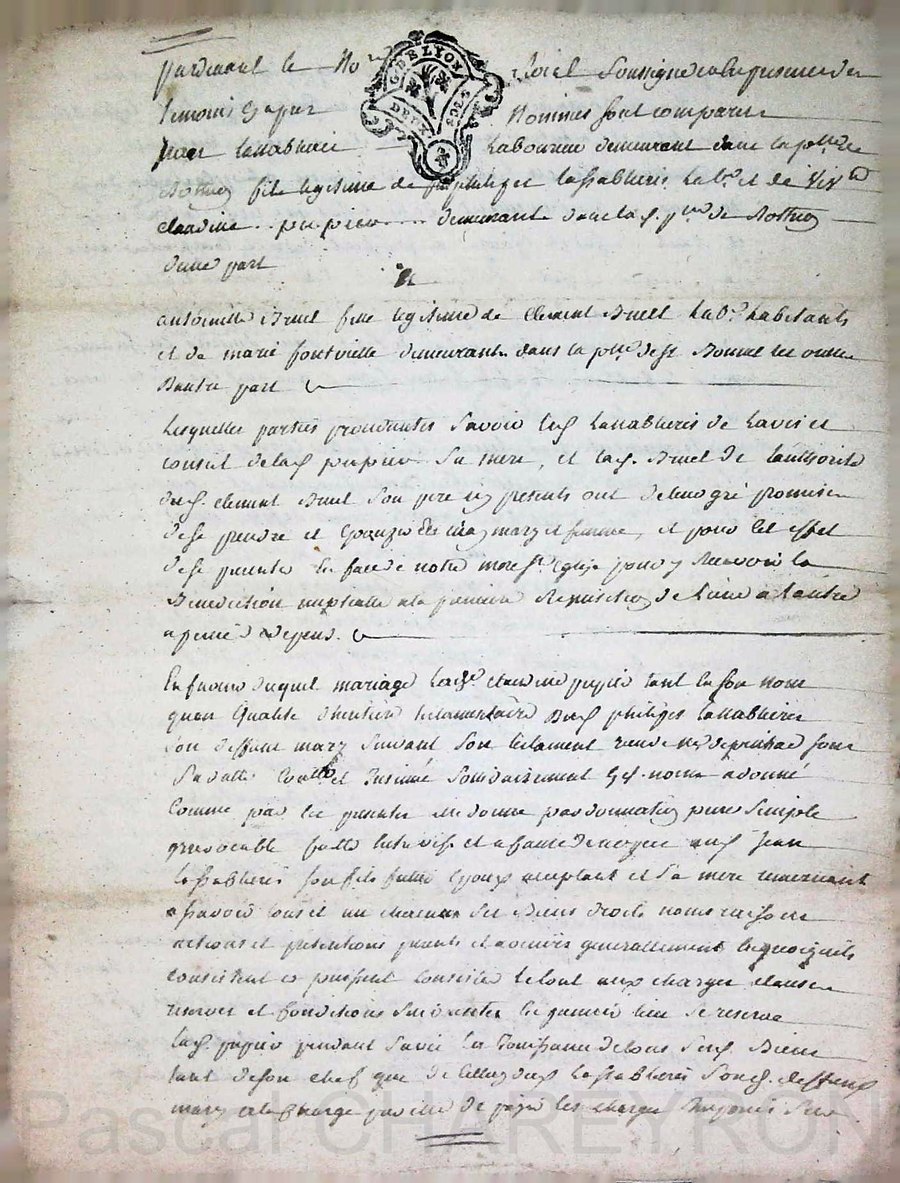 G. DE LYON
DEUX SOLS
pardevant le No Royal Soussigné en la presence des
temoins cy apres Nommes sont comparus
Jean Lassablieres Laboureur demeurant dans la psse de
fils legitime de feu philipes Lassablieres Labr et de
claudine pupier demeurante dans la d. psse de
d'une part
Et
antoinette Bruel fille legitime de clement Bruel Labr habitants
et de marie fontville demeurante dans la psse de st Bonnet les oulles
D'autre part
Lesquelles parties procedantes savoir led Lassablieres de Lavis et
conseil de lad pupier Sa mere, et lad. Bruel de Lauthorité
dud. clement Bruel Son pere icy presents ont de leur gré promis
de se prendre et Epouzer en vray mary et femme, et pour cet effet
de se presenter En face de notre mere Ste Eglise pour y Recevoir la
Benediction nuptialle a la premiere Requisition de L'une a L'autre
a peine de depens.
En faveur duquel mariage Lade claudine pupier tant En Son nom
quen qualité d'heritiere testamentaire dud philipes Lassablieres
Son deffunt mary Suivant Son testament
controllé et Insinué Solidairement Esd. noms a donné
Comme par les presentes elle donne par donnation pure Simple
Irrevocable faitte Entre vifs et a aud Jean
Lassablieres Son fils futur Epoux acceptant et Sa mere remerciant
Sçavoir tous et un chacuns Ses Biens droits noms raisons
actions et pretentions presents et avenirs generallement En quoi qu'ils
consistent et puissent consister le tout aux charges clauses
reserves et conditions Suivantes En premier lieu Se reserve
lad. pupier pendant Sa vie les Jouissances de tous Sesd. Biens
tant de Son chef que de Celluy dud Lassablieres Sond. deffunt
mary a la charge par elle de payer les charges Imposées Sur
Pascal CHAREYRON